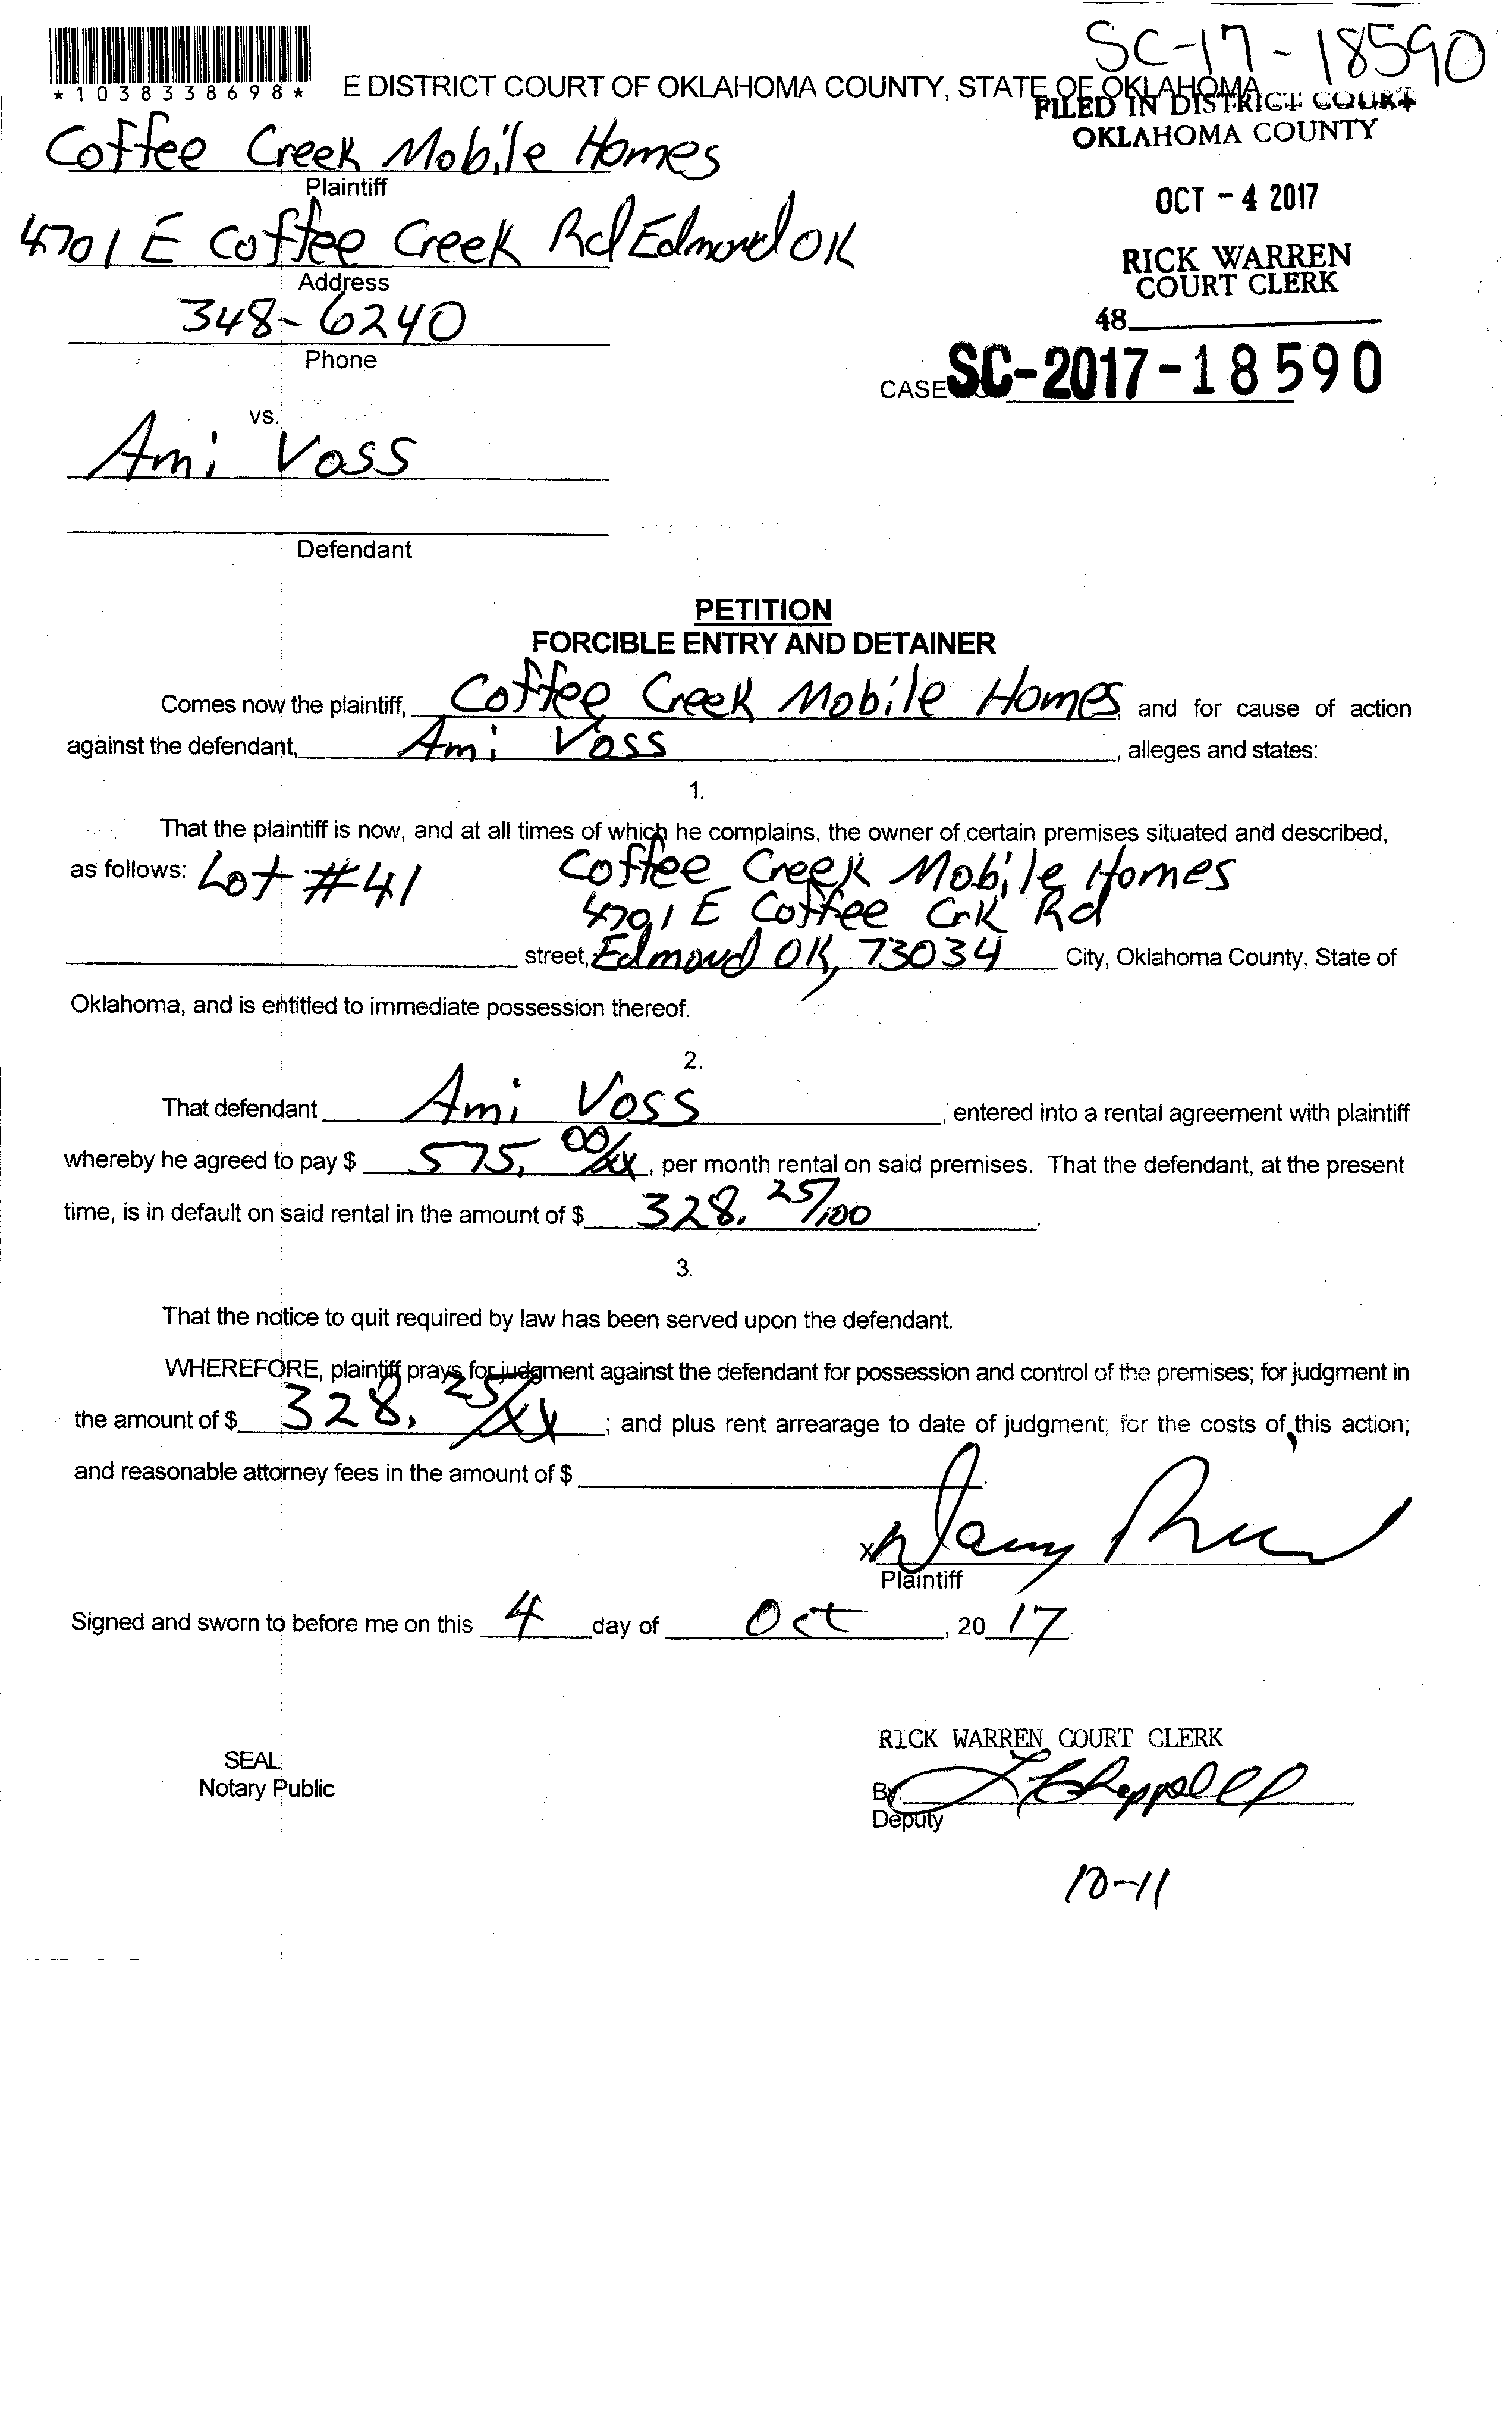 SC-17-18590
*1038338698*
E DISTRICT COURT OF OKLAHOMA COUNTY, STATE OF OKLAHOMA
FILED IN DISTRICT COURT
OKLAHOMA COUNTY
Coffee Creek Mobile Homes
Plaintiff
OCT - 4 2017
4701 E Coffee Creek Rd Edmond OK
Address
RICK WARREN
COURT CLERK
348-6240
48
Phone
CASE SC-2017-18590
vs.
Ami Voss
Defendant
PETITION
FORCIBLE ENTRY AND DETAINER
Comes now the plaintiff, Coffee Creek Mobile Homes and for cause of action
against the defendant, Ami Voss, alleges and states:
1.
That the plaintiff is now, and at all times of which he complains, the owner of certain premises situated and described,
as follows: Lot #41 Coffee Creek Mobile Homes
4701 E Coffee Crk Rd
street, Edmond OK, 73034 City, Oklahoma County, State of
Oklahoma, and is entitled to immediate possession thereof.
2.
That defendant Ami Voss, entered into a rental agreement with plaintiff
whereby he agreed to pay $ 575. 00/xx, per month rental on said premises. That the defendant, at the present
time, is in default on said rental in the amount of $ 328. 25/100.
3.
That the notice to quit required by law has been served upon the defendant.
WHEREFORE, plaintiff prays for judgment against the defendant for possession and control of the premises; for judgment in
the amount of $ 328. 25/xx; and plus rent arrearage to date of judgment; for the costs of this action;
and reasonable attorney fees in the amount of $
x
Plaintiff
Signed and sworn to before me on this 4 day of Oct, 20 17.
RICK WARREN COURT CLERK
SEAL
Notary Public
By
Deputy
10-11